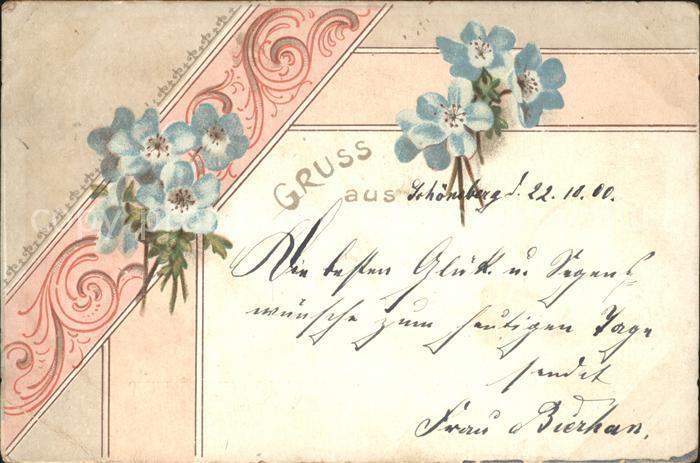 GRUSS
aus Schöneberg d. 22.10.00.
Die besten Glück u. Segens-
wünsche zum heutigen Tage
sendet
Frau